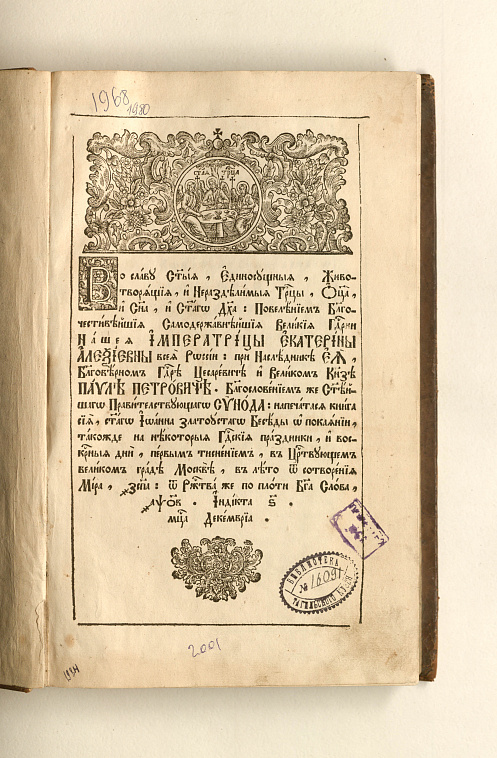 1968
1980
Ст҃аѧ Трⷪ҇ца
Во сла́ву Ст҃ы́ѧ, Е҆диносꙋ́щныѧ, Живо-
творѧ́щїѧ, и҆ Нераздѣ́лимыѧ Трⷪ҇цы, Ѻ҆ц҃а̀,
и҆ Сн҃а, и҆ Ст҃а́гѡ Дх҃а: Повелѣ́нїемъ Бл҃го-
чести́вѣйшїѧ Самодержа́внѣйшїѧ Вели́кїѧ Гдⷭ҇рни
На́шеѧ І҆МПЕРАТРИ́ЦЫ Е҆КАТЕРИ́НЫ
АЛЕѮІ́ЕВНЫ всеѧ̀ Рѡссі́и: при Наслѣ́дникѣ Е҆Ѧ̀,
Бл҃говѣ́рномъ Гдⷭ҇рѣ Цесаре́вичѣ и҆ Вели́комъ Кн҃зѣ
ПА́ѴЛѢ ПЕТРО́ВИЧѢ. Бл҃гослове́нїемъ же Ст҃ѣ́й-
шагѡ Прави́телствꙋющагѡ СѴНО́ДА: напеча́тасѧ кни́га
сїѧ̀, ст҃а́гѡ І҆ѡа́нна Златоꙋ́стагѡ Бесѣ́ды ѡ҆ покаѧ́нїи,
та́кожде на нѣ́которыѧ Гдⷭ҇кїѧ пра́здники, и҆ вос-
кре́сныѧ дни̑, пе́рвымъ тисне́нїемъ, въ Црⷭ҇твꙋющемъ
вели́комъ гра́дѣ Москвѣ̀, въ лѣ́то ѿ сотворе́нїѧ
Мі́ра, ѿ Ржⷭ҇тва́ же по пло́ти Бг҃а Сло́ва,
І҆ндї́кта ѕ҃.
мцⷭ҇а Деке́мврїа.
БИБЛИОТЕКА
№ 16091
2001
1934